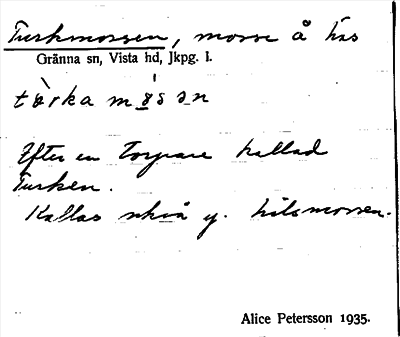 Turkmossen, mosse å Näs
Gränna sn, Vista hd, Jkpg. l.
tòrka mósən
Efter en torpare kallad
Turken.
Kallas också
Alice Petersson 1935.